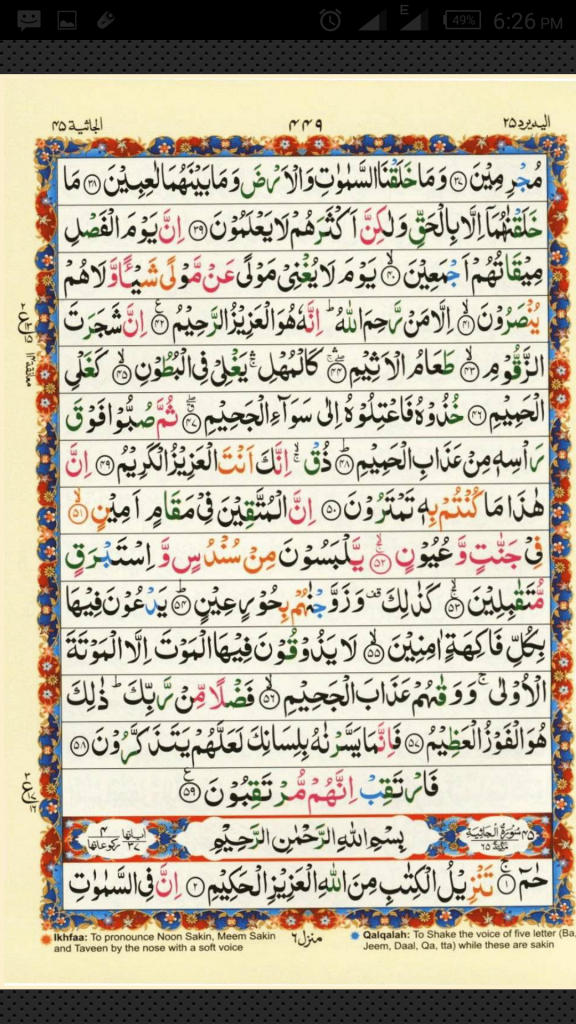 49% 6:26 PM
الجاثية ٤٥ ٤٤٩ اليه يرد ٢٥
مُجْرِمِيْنَ ﴿۳۷﴾ وَمَا خَلَقْنَا السَّمٰوٰتِ وَالْاَرْضَ وَمَا بَيْنَهُمَا لٰعِبِيْنَ ﴿۳۸﴾ مَا
خَلَقْنٰهُمَاۤ اِلَّا بِالْحَقِّ وَلٰكِنَّ اَكْثَرَهُمْ لَا يَعْلَمُوْنَ ﴿۳۹﴾ اِنَّ يَوْمَ الْفَصْلِ
مِيْقَاتُهُمْ اَجْمَعِيْنَ ﴿۴۰﴾ يَوْمَ لَا يُغْنِيْ مَوْلًى عَنْ مَّوْلًى شَيْـًٔا وَّلَا هُمْ
يُنْصَرُوْنَ ﴿۴۱﴾ اِلَّا مَنْ رَّحِمَ اللّٰهُ ؕ اِنَّهٗ هُوَ الْعَزِيْزُ الرَّحِيْمُ ﴿۴۲﴾ اِنَّ شَجَرَتَ
الزَّقُّوْمِ ﴿۴۳﴾ طَعَامُ الْاَثِيْمِ ﴿۴۴﴾ كَالْمُهْلِ ۛۚ يَغْلِيْ فِي الْبُطُوْنِ ﴿۴۵﴾ كَغَلْيِ
الْحَمِيْمِ ﴿۴۶﴾ خُذُوْهُ فَاعْتِلُوْهُ اِلٰى سَوَآءِ الْجَحِيْمِ ﴿۴۷﴾ ثُمَّ صُبُّوْا فَوْقَ
رَاْسِهٖ مِنْ عَذَابِ الْحَمِيْمِ ﴿۴۸﴾ ذُقْ ۚۙ اِنَّكَ اَنْتَ الْعَزِيْزُ الْكَرِيْمُ ﴿۴۹﴾ اِنَّ
هٰذَا مَا كُنْتُمْ بِهٖ تَمْتَرُوْنَ ﴿۵۰﴾ اِنَّ الْمُتَّقِيْنَ فِيْ مَقَامٍ اَمِيْنٍ ﴿۵۱﴾
فِيْ جَنّٰتٍ وَّعُيُوْنٍ ﴿۵۲﴾ يَّلْبَسُوْنَ مِنْ سُنْدُسٍ وَّاِسْتَبْرَقٍ
مُّتَقٰبِلِيْنَ ﴿۵۳﴾ كَذٰلِكَ ۟ وَزَوَّجْنٰهُمْ بِحُوْرٍ عِيْنٍ ﴿۵۴﴾ يَدْعُوْنَ فِيْهَا
بِكُلِّ فَاكِهَةٍ اٰمِنِيْنَ ﴿۵۵﴾ لَا يَذُوْقُوْنَ فِيْهَا الْمَوْتَ اِلَّا الْمَوْتَةَ
الْاُوْلٰى ۚ وَوَقٰىهُمْ عَذَابَ الْجَحِيْمِ ﴿۵۶﴾ فَضْلًا مِّنْ رَّبِّكَ ؕ ذٰلِكَ
هُوَ الْفَوْزُ الْعَظِيْمُ ﴿۵۷﴾ فَاِنَّمَا يَسَّرْنٰهُ بِلِسَانِكَ لَعَلَّهُمْ يَتَذَكَّرُوْنَ ﴿۵۸﴾
فَارْتَقِبْ اِنَّهُمْ مُّرْتَقِبُوْنَ ﴿۵۹﴾
اٰياتها ۳۷ ركوعاتها ۴ بِسْمِ اللّٰهِ الرَّحْمٰنِ الرَّحِيْمِ ۴۵ سُوْرَةُ الْجَاثِيَةِ مَكِّيَّةٌ ٦۵
حٰمٓ ﴿۱﴾ تَنْزِيْلُ الْكِتٰبِ مِنَ اللّٰهِ الْعَزِيْزِ الْحَكِيْمِ ﴿۲﴾ اِنَّ فِي السَّمٰوٰتِ
منزل ٦
Ikhfaa: To pronounce Noon Sakin, Meem Sakin
and Taveen by the nose with a soft voice
Qalqalah: To Shake the voice of five letter (Ba,
Jeem, Daal, Qa, tta) while these are sakin